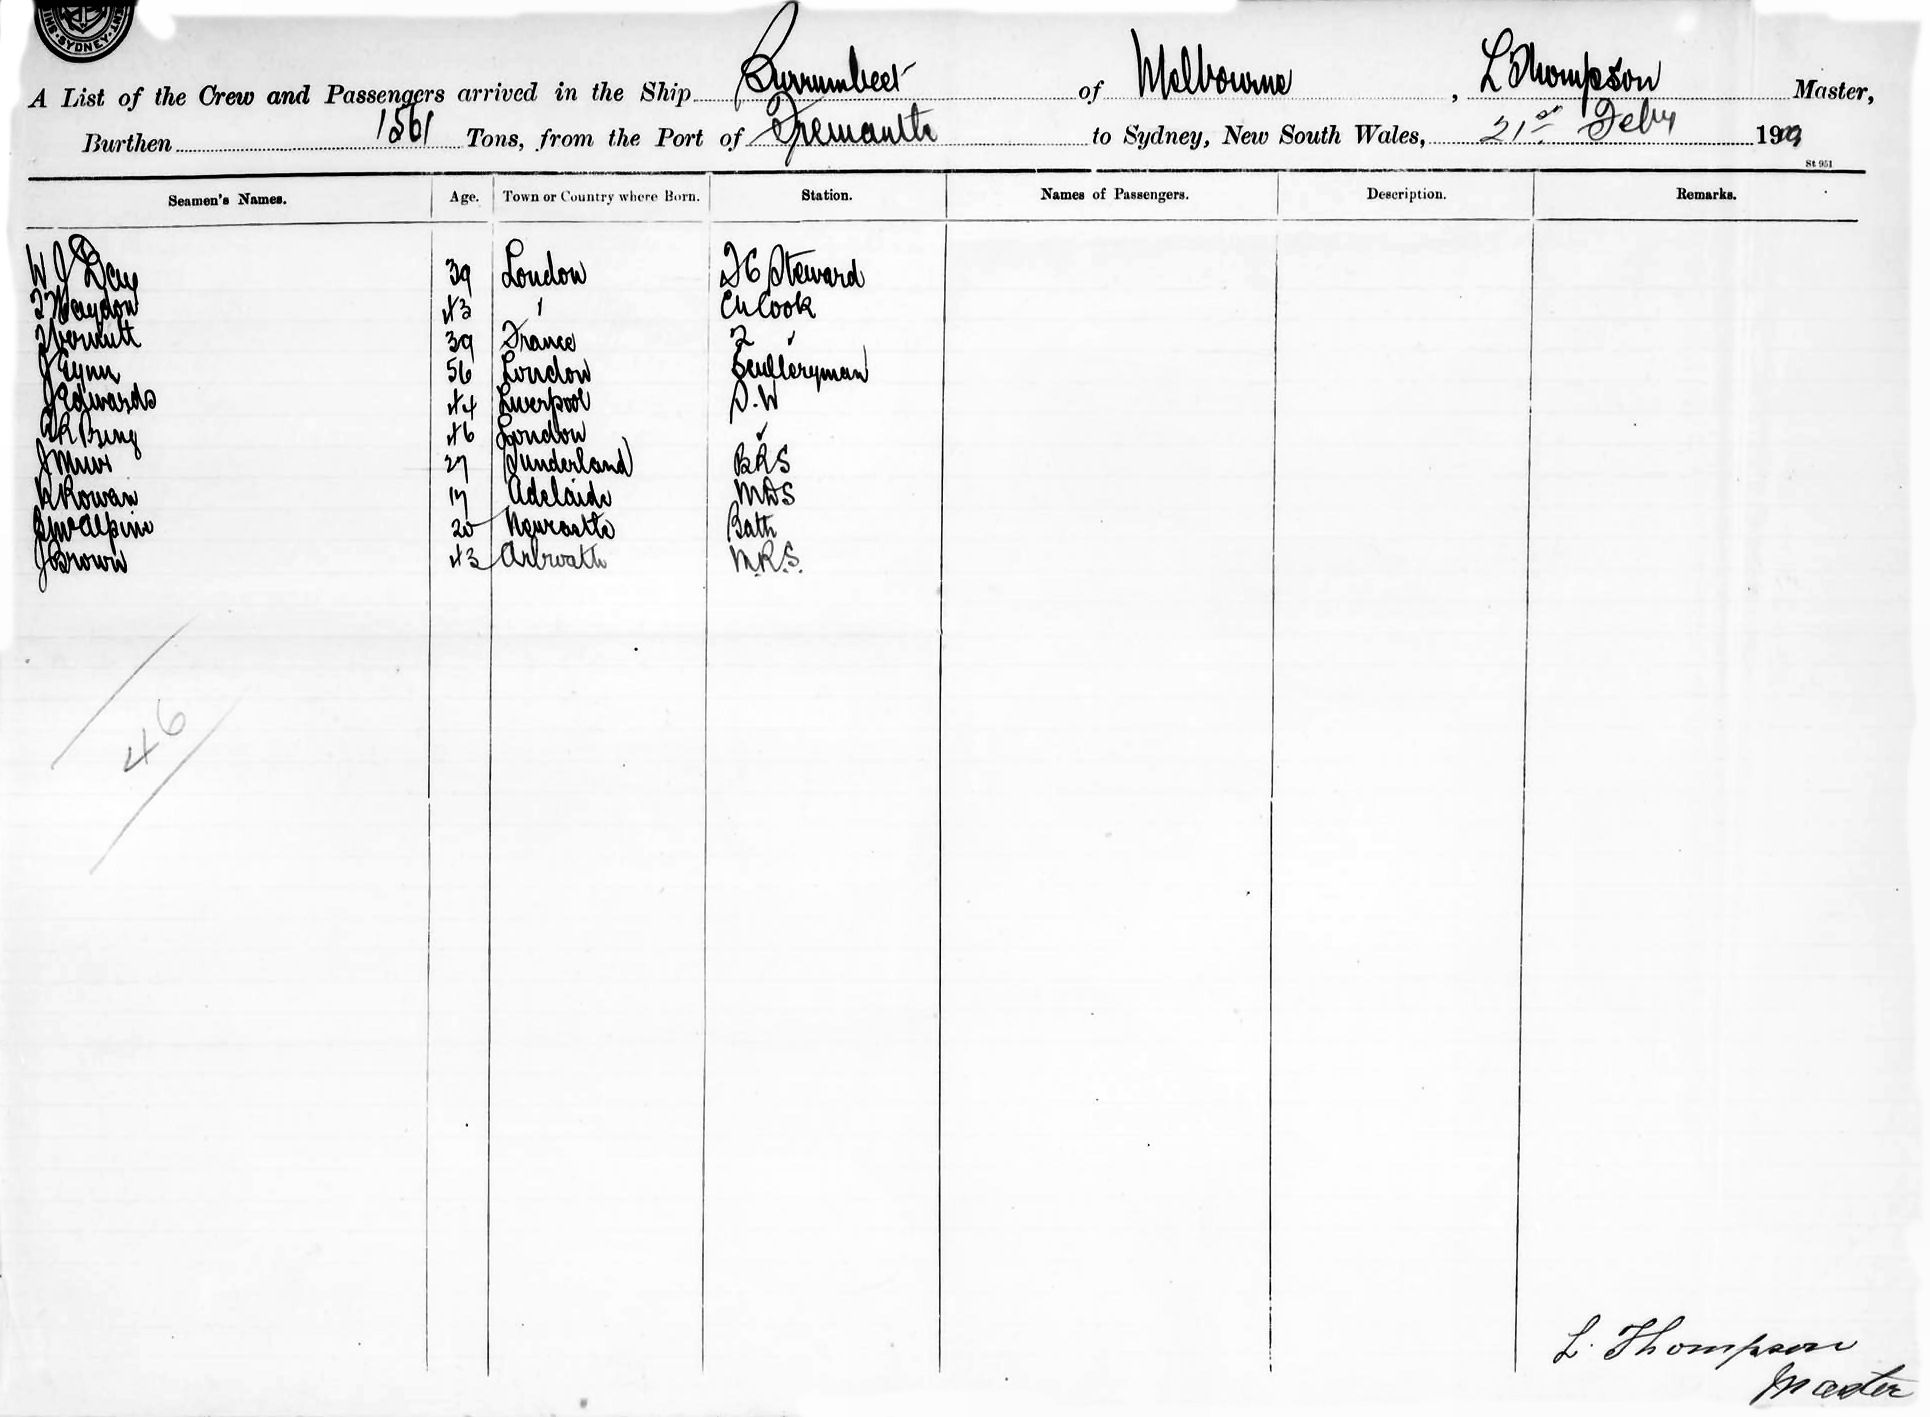 SYDNEY
A List of the Crew and Passengers arrived in the Ship Burrumbeet of Melbourne, L Thompson Master,
Burthen 1561 Tons, from the Port of Fremantle to Sydney, New South Wales, 21st Feby 1909
St 951
Seamen's Names. Age. Town or Country where Born. Station. Names of Passengers. Description. Remarks.
W J Day 39 London F C Steward
43 " Ch Cook
39 France 2 "
56 London Sculleryman
J Edwards 44 Liverpool S.W
46 London "
J Muir 27 Sunderland BRS
Rowan 17 Adelaide MDS
J McAlpine 20 Newcastle Bath
J Brown 43 Arbroath M.R.S.
46
L. Thompson
Master